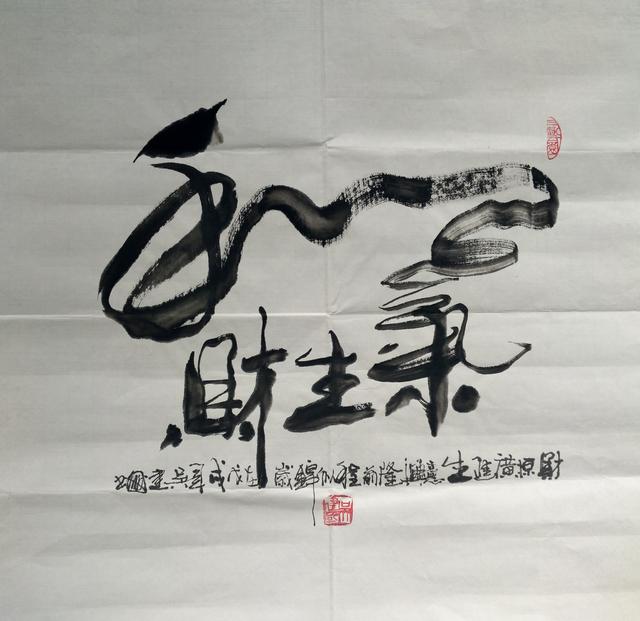 和氣生財
財源廣進生意興隆前程似錦歲在戊戌年